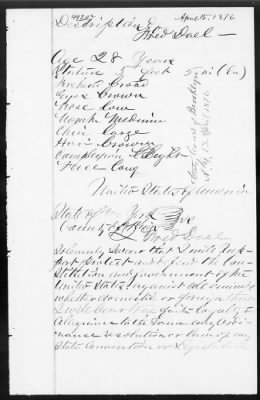 April 15, 1876
Description of
Fred Dael
Age 28 Years
Stature 5 feet
Forehead broad
Eyes brown
Nose low
Mouth Medium
Chin large
Hair brown
Complexion Light
Face Long
United States of America
State of New York
County of
Fred Dael
Solemnly Swear that I will Sup
port protect and defend the Con
stitution and government of the
United States against all enemies
whether domestic or foreign
I will bear true faith loyalty &
Allegiance to the Same any Ordi
nance resolution or law of any
State Convention or Legislature